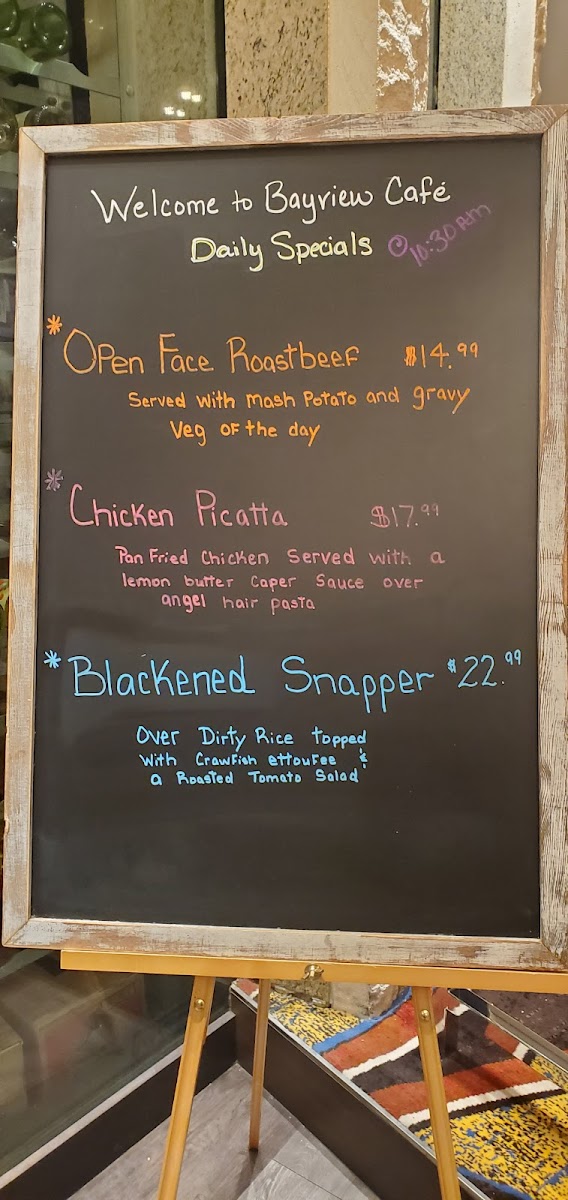 Welcome to Bayview Café
Daily Specials @ 10:30 AM
* Open Face Roastbeef $14.99
Served with mash potato and gravy
Veg of the day
* Chicken Picatta $17.99
Pan Fried Chicken Served with a
lemon butter caper sauce over
angel hair pasta
* Blackened Snapper $22.99
Over Dirty Rice topped
with Crawfish ettoufee &
a Roasted Tomato Salad